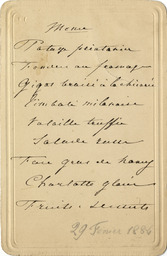 Menu
Potage printanier
au fromage
Gigot braisé à la
Timbale milanaise
Volaille truffée
Salade russe
Foie gras de Nancy
Charlotte glacée
Fruits - desserts
29 Février 1884